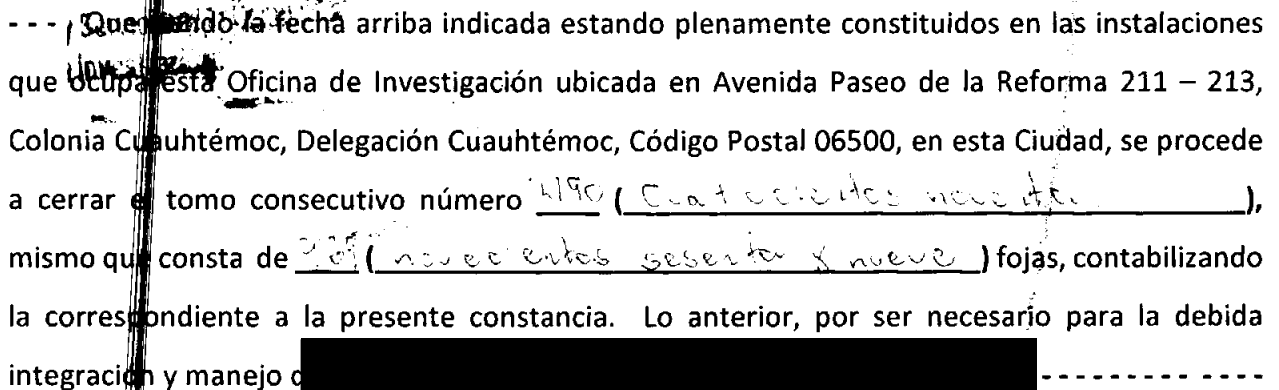 - - - Que siendo la fecha arriba indicada estando plenamente constituidos en las instalaciones
que ocupa esta Oficina de Investigación ubicada en Avenida Paseo de la Reforma 211 – 213,
Colonia Cuauhtémoc, Delegación Cuauhtémoc, Código Postal 06500, en esta Ciudad, se procede
a cerrar el tomo consecutivo número 490 ( Cuatrocientos noventa ),
mismo que consta de ( novecientos sesenta y nueve ) fojas, contabilizando
la correspondiente a la presente constancia. Lo anterior, por ser necesario para la debida
integración y manejo - - - - - - - - - - - - -